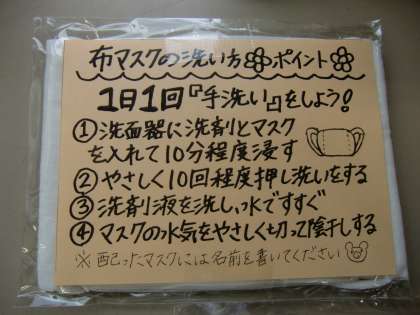 布マスクの洗い方 ポイント
1日1回『手洗い』をしよう!
①洗面器に洗剤とマスク
を入れて10分程度浸す
②やさしく10回程度押し洗いをする
③洗剤液を洗し、水ですすぐ
④マスクの水気をやさしく切って陰干しする
※配ったマスクには名前を書いてください